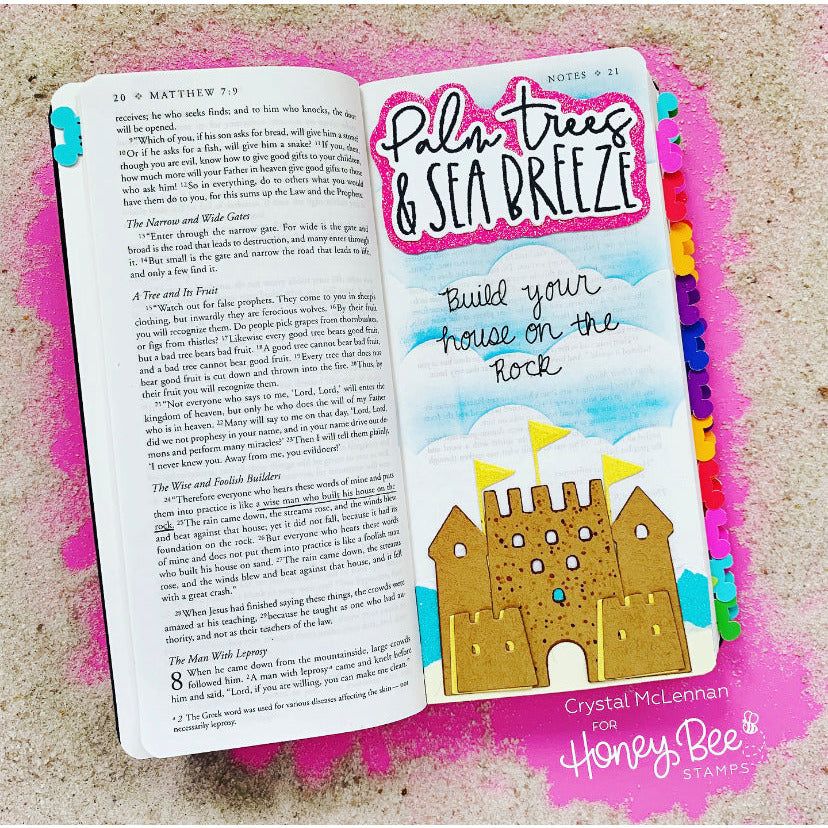 20 ❖ MATTHEW 7:9
receives; he who seeks finds; and to him who knocks, the door
will be opened.
9"Which of you, if his son asks for bread, will give him a stone?
10Or if he asks for a fish, will give him a snake? 11If you, then,
though you are evil, know how to give good gifts to your children,
how much more will your Father in heaven give good gifts to those
who ask him! 12So in everything, do to others what you would
have them do to you, for this sums up the Law and the Prophets.
The Narrow and Wide Gates
13"Enter through the narrow gate. For wide is the gate and
broad is the road that leads to destruction, and many enter through
it. 14But small is the gate and narrow the road that leads to life,
and only a few find it.
A Tree and Its Fruit
15"Watch out for false prophets. They come to you in sheep's
clothing, but inwardly they are ferocious wolves. 16By their fruit
you will recognize them. Do people pick grapes from thornbushes,
or figs from thistles? 17Likewise every good tree bears good fruit,
but a bad tree bears bad fruit. 18A good tree cannot bear bad fruit,
and a bad tree cannot bear good fruit. 19Every tree that does not
bear good fruit is cut down and thrown into the fire. 20Thus, by
their fruit you will recognize them.
21"Not everyone who says to me, 'Lord, Lord,' will enter the
kingdom of heaven, but only he who does the will of my Father
who is in heaven. 22Many will say to me on that day, 'Lord, Lord,
did we not prophesy in your name, and in your name drive out de-
mons and perform many miracles?' 23Then I will tell them plainly,
'I never knew you. Away from me, you evildoers!'
The Wise and Foolish Builders
24"Therefore everyone who hears these words of mine and puts
them into practice is like a wise man who built his house on the
rock. 25The rain came down, the streams rose, and the winds blew
and beat against that house; yet it did not fall, because it had its
foundation on the rock. 26But everyone who hears these words
of mine and does not put them into practice is like a foolish man
who built his house on sand. 27The rain came down, the streams
rose, and the winds blew and beat against that house, and it fell
with a great crash."
28When Jesus had finished saying these things, the crowds were
amazed at his teaching, 29because he taught as one who had au-
thority, and not as their teachers of the law.
The Man With Leprosy
8 When he came down from the mountainside, large crowds
followed him. 2A man with leprosy a came and knelt before
him and said, "Lord, if you are willing, you can make me clean."
a 2 The Greek word was used for various diseases affecting the skin—not
necessarily leprosy.
NOTES ❖ 21
Palm trees
& SEA BREEZE
Build your
house on the
Rock
Crystal McLennan
FOR
Honey Bee
STAMPS